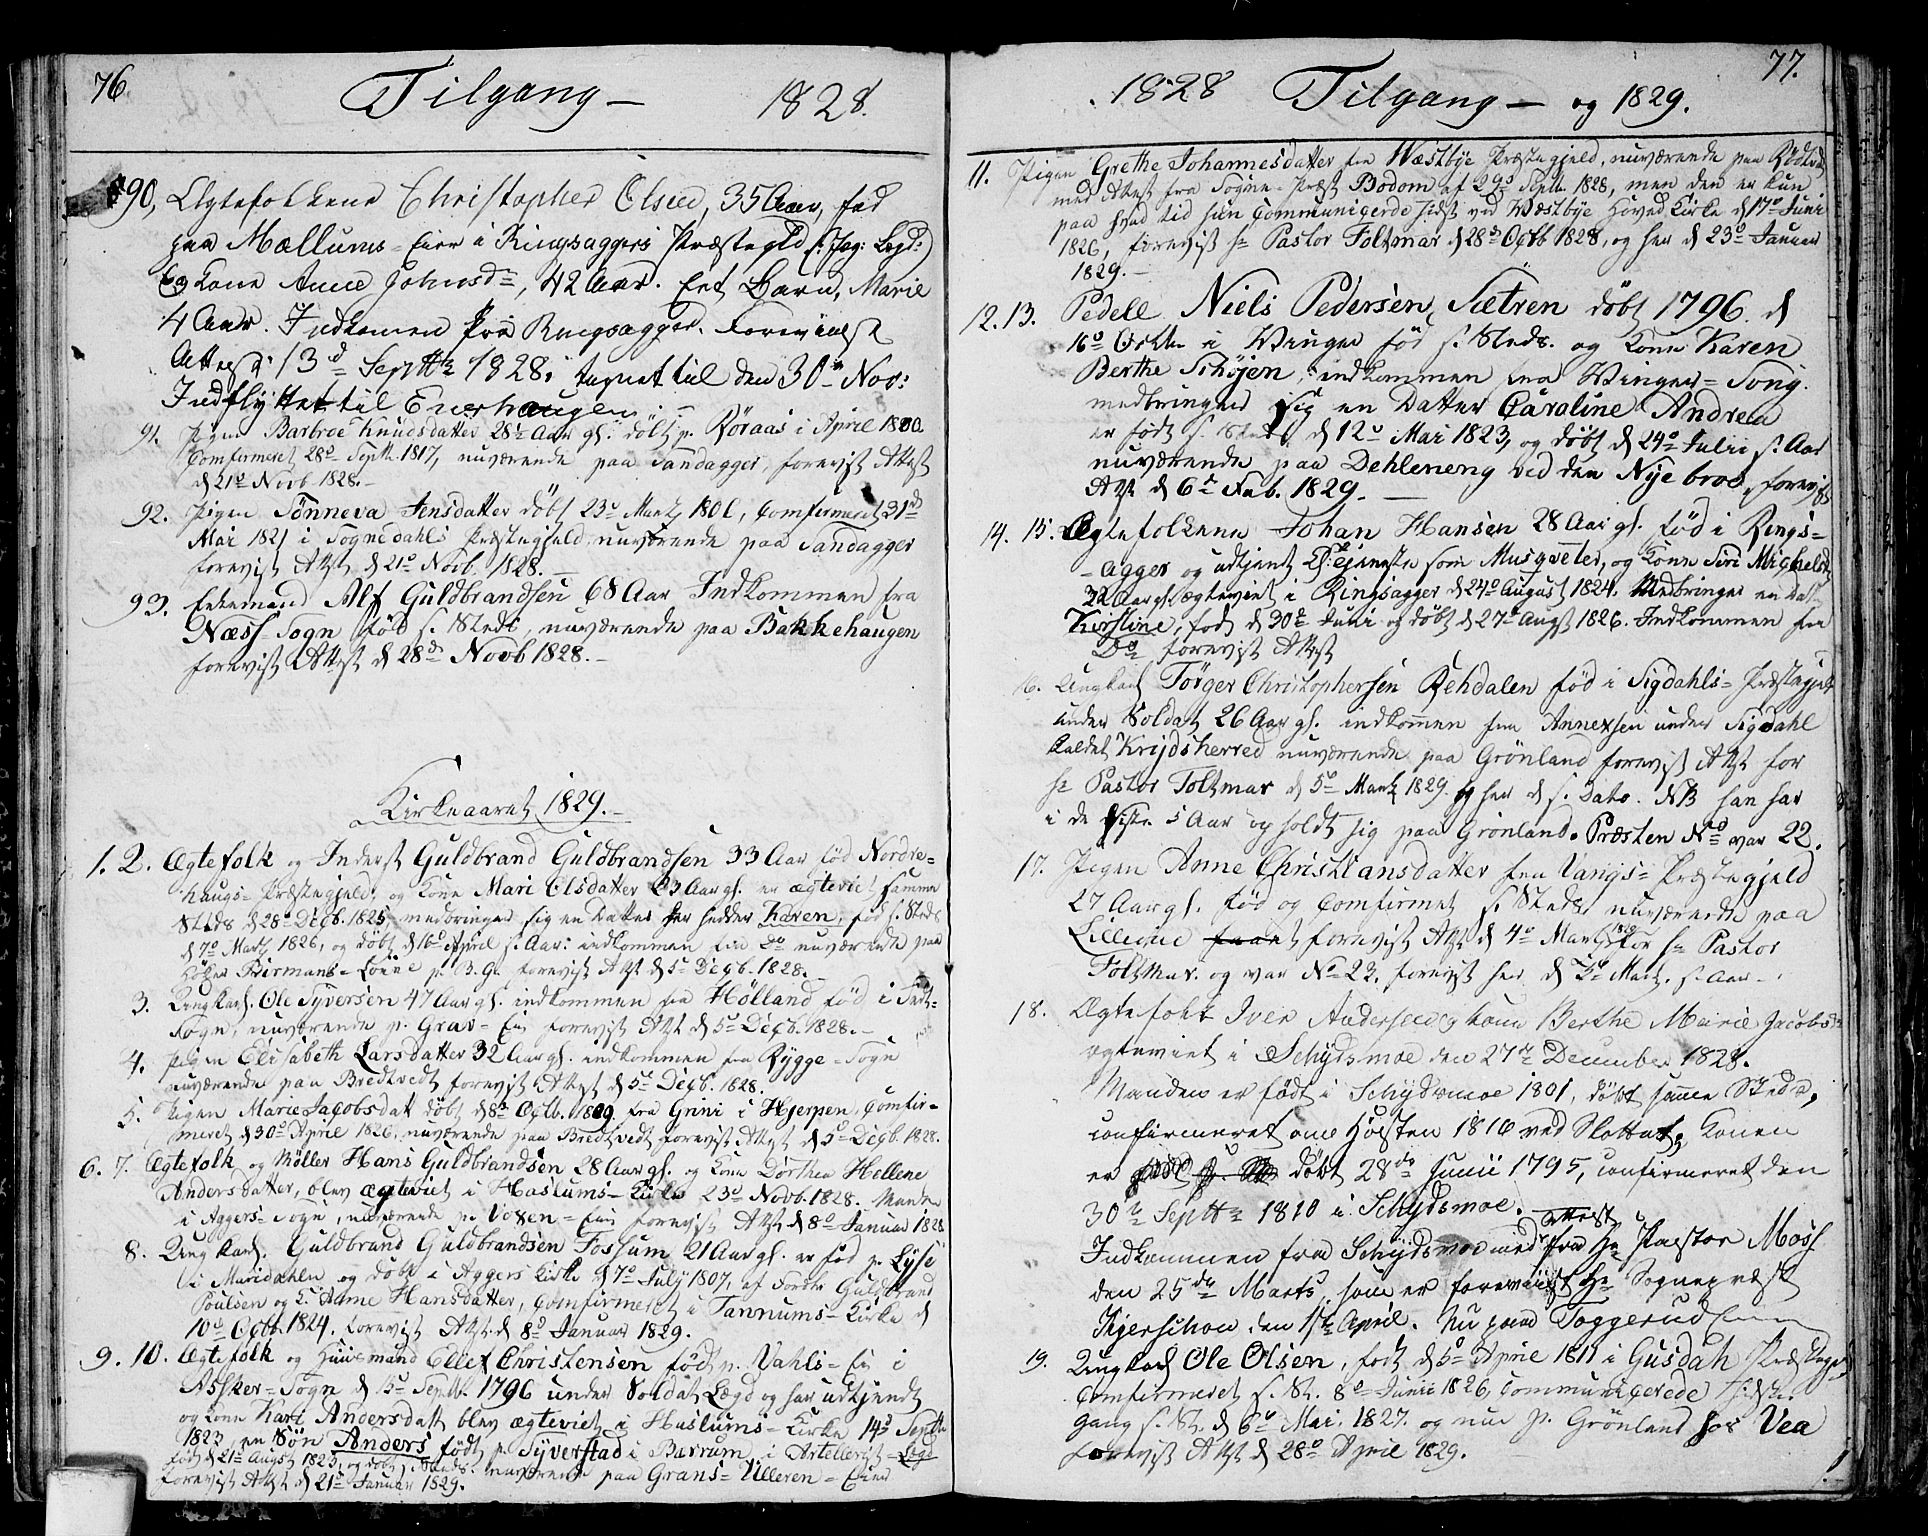 76.
Tilgang — 1828.
90, Ægtefolkene Christopher Olsen, 35 Aar, fød
paa Mællums-Eier i Ringsaggers Præstegld
og Kone Anne Johnsd:, 42 Aar. Et Barn, Marie
4 Aar. Indkomen fra Ringsagger. Foreviist
Attest 13d Septbr 1828, tegnet til den 30 Nov:
Indflyttet til Enerhaugen.
91. Pigen Barbroe Knudsdatter 28½ Aar gl. døbt p. Røraas i April 1800.
Comfirmeret 28de Septb. 1817, nuværende paa Sandagger, forevist Attest
d 21de Novb 1828.
92. Pigen Sønneva Jensdatter døbt 23de Martz 1801, Comfirmeret 31de
Mai 1821 i Sognedahls Præstegjeld, nuværende paa Sandagger
forevist Attest d 21de Novb. 1828.
93. Enkemand Alf Guldbrandsen 68 Aar Indkommen fra
Næss-Sogn fød s. Sted, nuværende paa Bakkehaugen
forevist Attest d 28de Novb 1828.
Kirkeaaret 1829.
1. 2. Ægtefolk og Inderst Guldbrand Guldbrandsen 33 Aar fød Nordre-
haugs-Præstegjeld, og Kone Mari Olsdatter Aar gl. er ægteviet samme
Steds d 28de Decb. 1825 medbringer sig en Datter her hedder Karen, fød s. Steds
d 7de Martz 1826, og døbt d 16de April s. Aar: indkommen fra Do nuværende paa
p. B.G. forevist Attest d 5te Decb. 1828.
3. Ungkarl. Ole Syversen 47 Aar gl. indkommen fra Høland fød i
Sogn, nuværende p. Grav-Eie forevist Attest d 5te Decb. 1828.
4. Pigen Elisabeth Larsdatter 32 Aar gl. indkommen fra Rygge-Sogn
nuværende paa Bredtvedt forevist Attest d 5te Decb. 1828.
5. Pigen Marie Jacobsdat døbt d 8de Octb. 1809 fra Grini i Hjerpen, Comfir-
meret d 30te April 1826, nuværende paa Bredtvedt forevist Attest d 5te Decb. 1828.
6. 7. Ægtefolk og Møller Hans Guldbrandsen 28 Aar gl. og Kone Dorthea Hellene
Andersdatter, blev ægteviet i Haslums-Kirke 23de Novb. 1828. Manden
i Aggers-Sogn, nuværende p. Voxen-Eie forevist Attest d 8de Januar 1828
8. Ungkarl. Guldbrand Guldbrandsen Fossum 21 Aar gl. er fød p. Lyse
i Maridahlen og døbt i Aggers Kirke d 7de July 1807, af Fordre Guldbrand
Poulsen og K. Anne Hansdatter, Comfirmeret i Tannums-Kirke d
10de Octb. 1824. forevist Attest d 8de Januar 1829.
9. 10. Ægtefolk og Huusmand Ellef Christensen født p. Vahls-Eie i
Assker-Sogn d 15de Septb. 1796 under Soldat Lægd og har udtjendt
og Kone Kari Andersdatt blev ægteviet i Haslums-Kirke 14de Septb
1823 en Søn Anders født p. Syverstad i Barrum, i Artellerist-Legd
født d 21de Augst 1823, og døbt s. Steds. nuværende paa Grans-Ulleren-Eier
forevist Attest d 21de Januar 1829.
77.
1828 Tilgang — og 1829.
11. Pigen Grethe Johannesdatter fra Wæstbye Præstegjeld, nuværende paa Rödted
med Attest fra Sogne-Præst Bodom af 29de Septb. 1828, men den er kun
paa hvad tid hun Communicerede sidst ved Wæstbye Hoved Kirke d 17de Juni
1826, forevist hr Pastor Foltmar d 28de Octb 1828, og her d 23de Januar
1829.
12. 13. Pedell Niels Pedersen Sætren døbt 1796 d
16de Octbr i Winger fød s. Steds. og Kone Karen
Berthe Schøjen, indkommen fra Winger-Sogn.
medbringer sig en Datter Caroline Andrea
er født s. Sted d 12te Mai 1823, og døbt d 24de Julii s. Aar
nuværende paa Dehleneng ved den Nye broe, forevist
Attest d 6te Feb. 1829.
14. 15. Ægtefolkene Johan Hansen 28 Aar gl. fød i Rings-
agger og udtjent som Musqveter, og Kone Siri Michelsd
32 Aar gl. ægteviet i Ringsagger d 24de August 1824. Medbringer en Dat
Kirstine, født d 30te Juni og døbt d 27de Augst 1826. Indkommen fra
Do forevist Attest
16. Ungkarl Törger Christophersen Rehdalen fød i Sigdahls-Præstegjeld
under Soldat 26 Aar gl. indkomen fra Annexsen under Sigdahl
kaldet Krydsherred nuværende paa Grönland forevist Attest for
hr Pastor Foltmar d 5te Martz 1829 og her d s. Dato. NB han har
i de siste 5 Aar opholdt sig paa Grönland. Præsten No var 22.
17. Pigen Anne Christiansdatter fra Vangs-Præstegjeld
27 Aar gl. fød og Comfirmet s. Steds. nuværende paa
Lilleeie forevist Attest d 4de Martz for hr Pastor
Foltmar. og var No 23. forevist her d 5te Martz. s. Aar.
18. Ægtefolk Iver Andersen og kone Berthe Marie Jacobsdr
egteviet i Schydsmoe den 27de December 1828.
Manden er født i Schydsmoe 1801, døbt samme Steds,
confirmeret om Høsten 1816 ved Slottet, Konen
er døbt 28de Junii 1795, confirmeret den
30te Septbr 1810 i Schydsmoe.
Indkommen fra Schydsmoe med Attest fra Hr Pastor Moss
den 25de Marts, som er foreviist Hr Sognepræst
Kjerschou den 1ste April. Nu paa Toggerud Eie
19. Ungkarl Ole Olsen, født d 5te April 1811 i Gusdah Præstegjel
Comfirmeret s. St. 8de Junii 1826, Communicerede sidste
gang s. St. d 6te Mai. 1827. og nu p. Grönland hos Vea
forevist Attest d 28de April 1829.